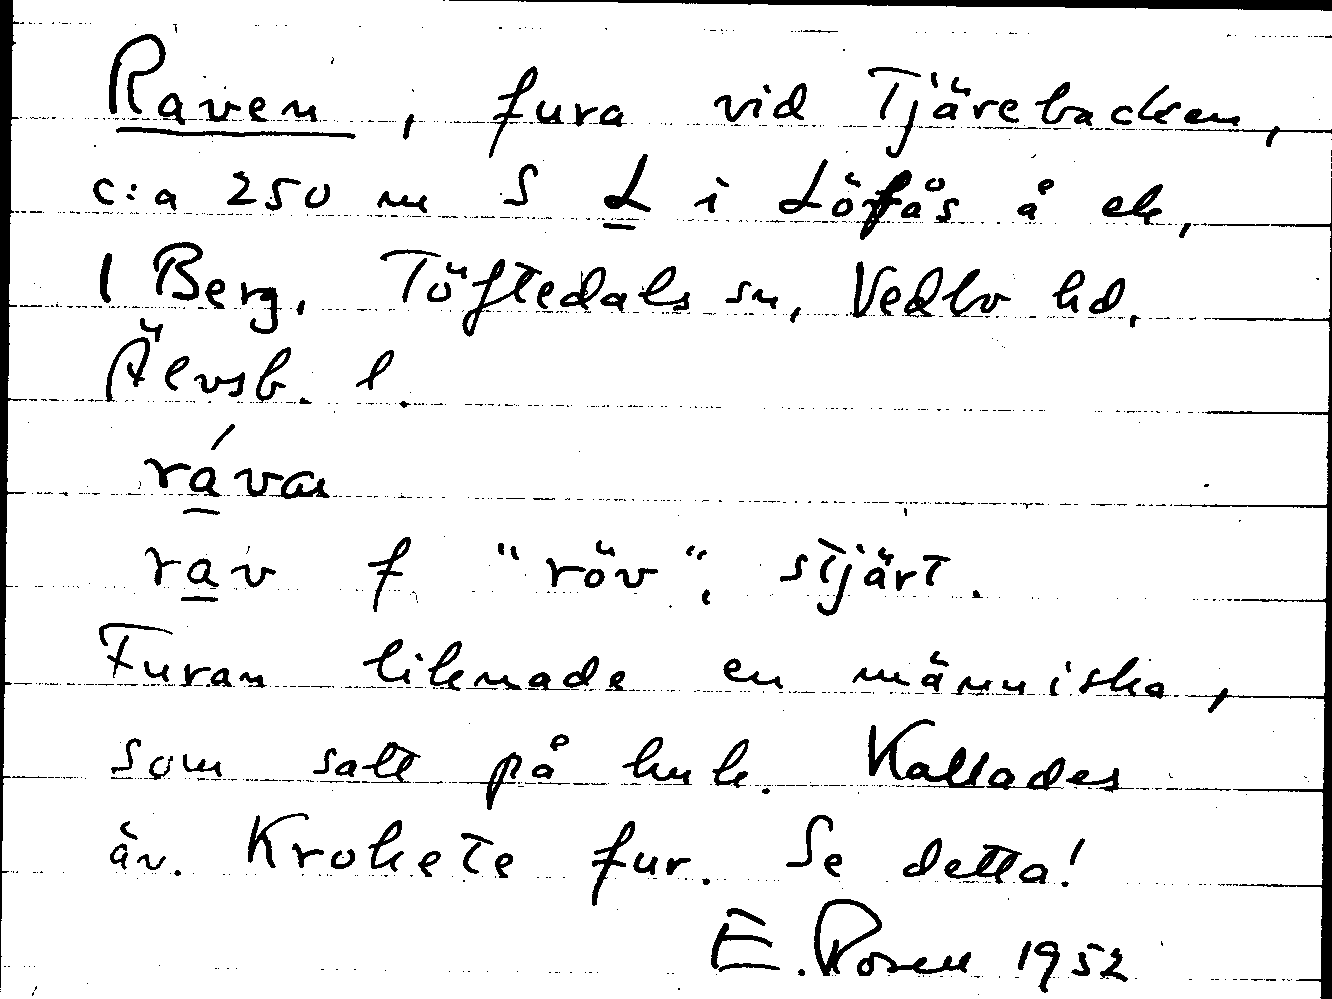 Raven, fura vid Tjärebacken,
c:a 250 m S L i Löfås å ek,
1 Berg, Töftedals sn, Vedbo hd,
Älvsb. l.
råvan
rav f "röv", stjärt.
Furan liknade en människa,
som satt på huk. Kallades
äv. Krokete fur. Se detta!
E. Rosen 1952